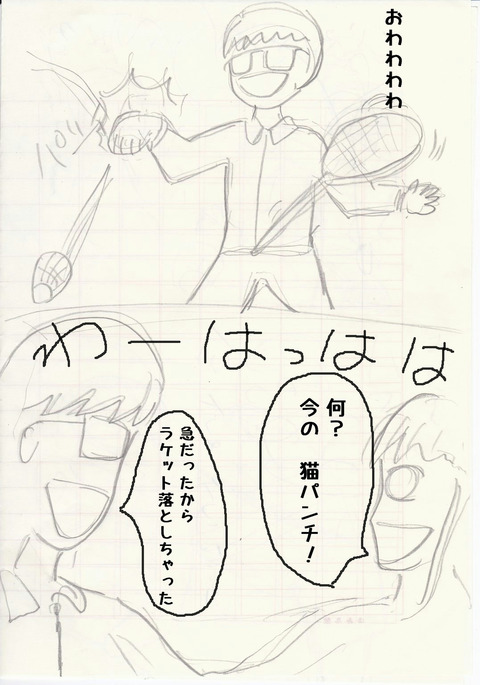 おわわわわ
バシ
わーはっはは
何?
今の 猫パンチ!
急だったから
ラケット落としちゃった